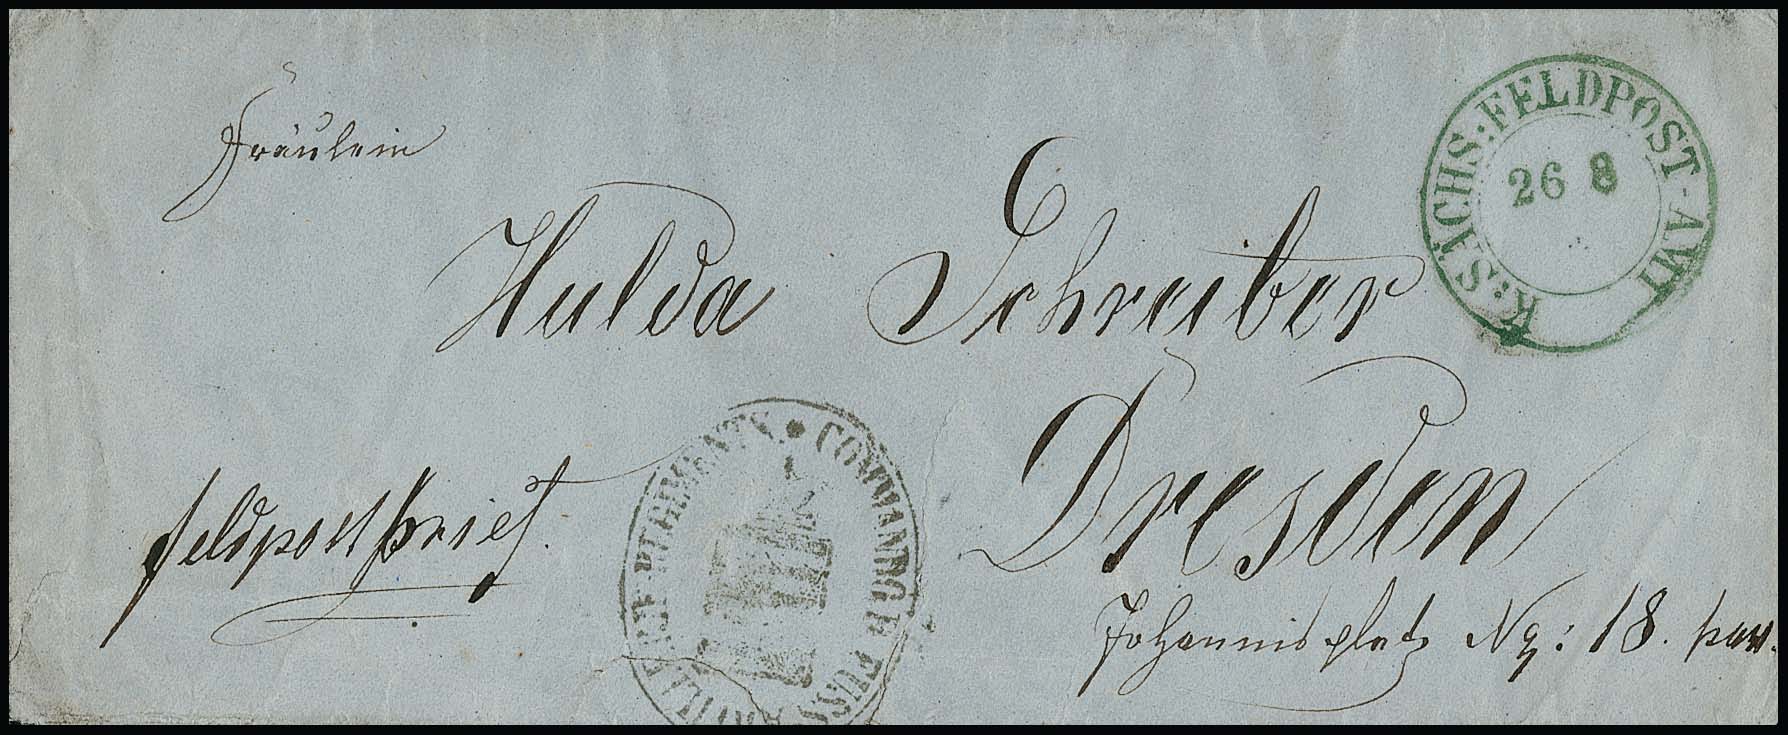 Fräulein
K: SÄCHS: FELDPOST-AMT
26 8
Hulda Schreiber
Dresden
Feldpostbrief.
COMMANDO FUSS ARTILLERIE REGIMENTS
Johannisplatz No: 18. part.